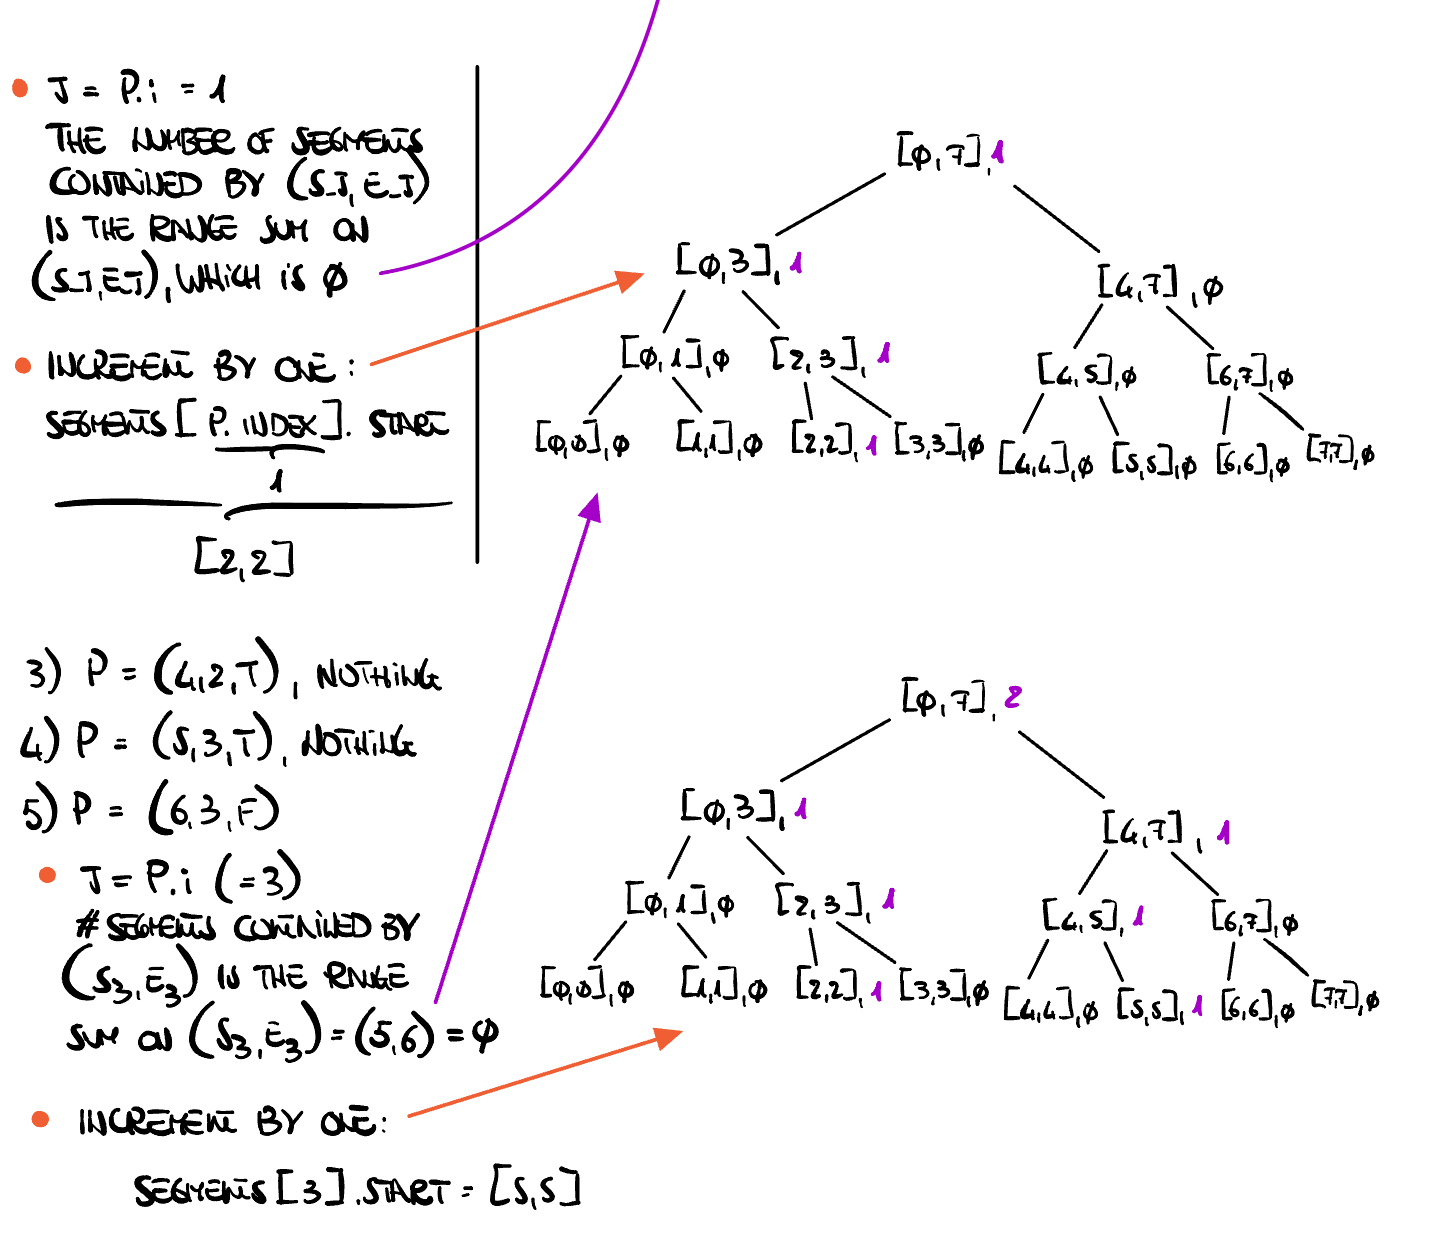 J = P.i = 1
THE NUMBER OF SEGMENTS
CONTAINED BY (S_J, E_J)
IS THE RANGE SUM ON
(S_J, E_J), WHICH IS Ø
INCREMENT BY ONE:
SEGMENTS [P. INDEX]. START
1
[2,2]
[Ø,7],1
[Ø,3],1
[4,7],Ø
[Ø,1],Ø
[2,3],1
[4,5],Ø
[6,7],Ø
[Ø,Ø],Ø
[1,1],Ø
[2,2],1
[3,3],Ø
[4,4],Ø
[5,5],Ø
[6,6],Ø
[7,7],Ø
3) P = (4,2,T), NOTHING
4) P = (5,3,T), NOTHING
5) P = (6,3,F)
J = P.i (=3)
# SEGMENTS CONTAINED BY
(S3, E3) IS THE RANGE
SUM ON (S3, E3) = (5,6) = Ø
INCREMENT BY ONE:
SEGMENTS [3].START = [5,5]
[Ø,7],2
[Ø,3],1
[4,7],1
[Ø,1],Ø
[2,3],1
[4,5],1
[6,7],Ø
[Ø,Ø],Ø
[1,1],Ø
[2,2],1
[3,3],Ø
[4,4],Ø
[5,5],1
[6,6],Ø
[7,7],Ø